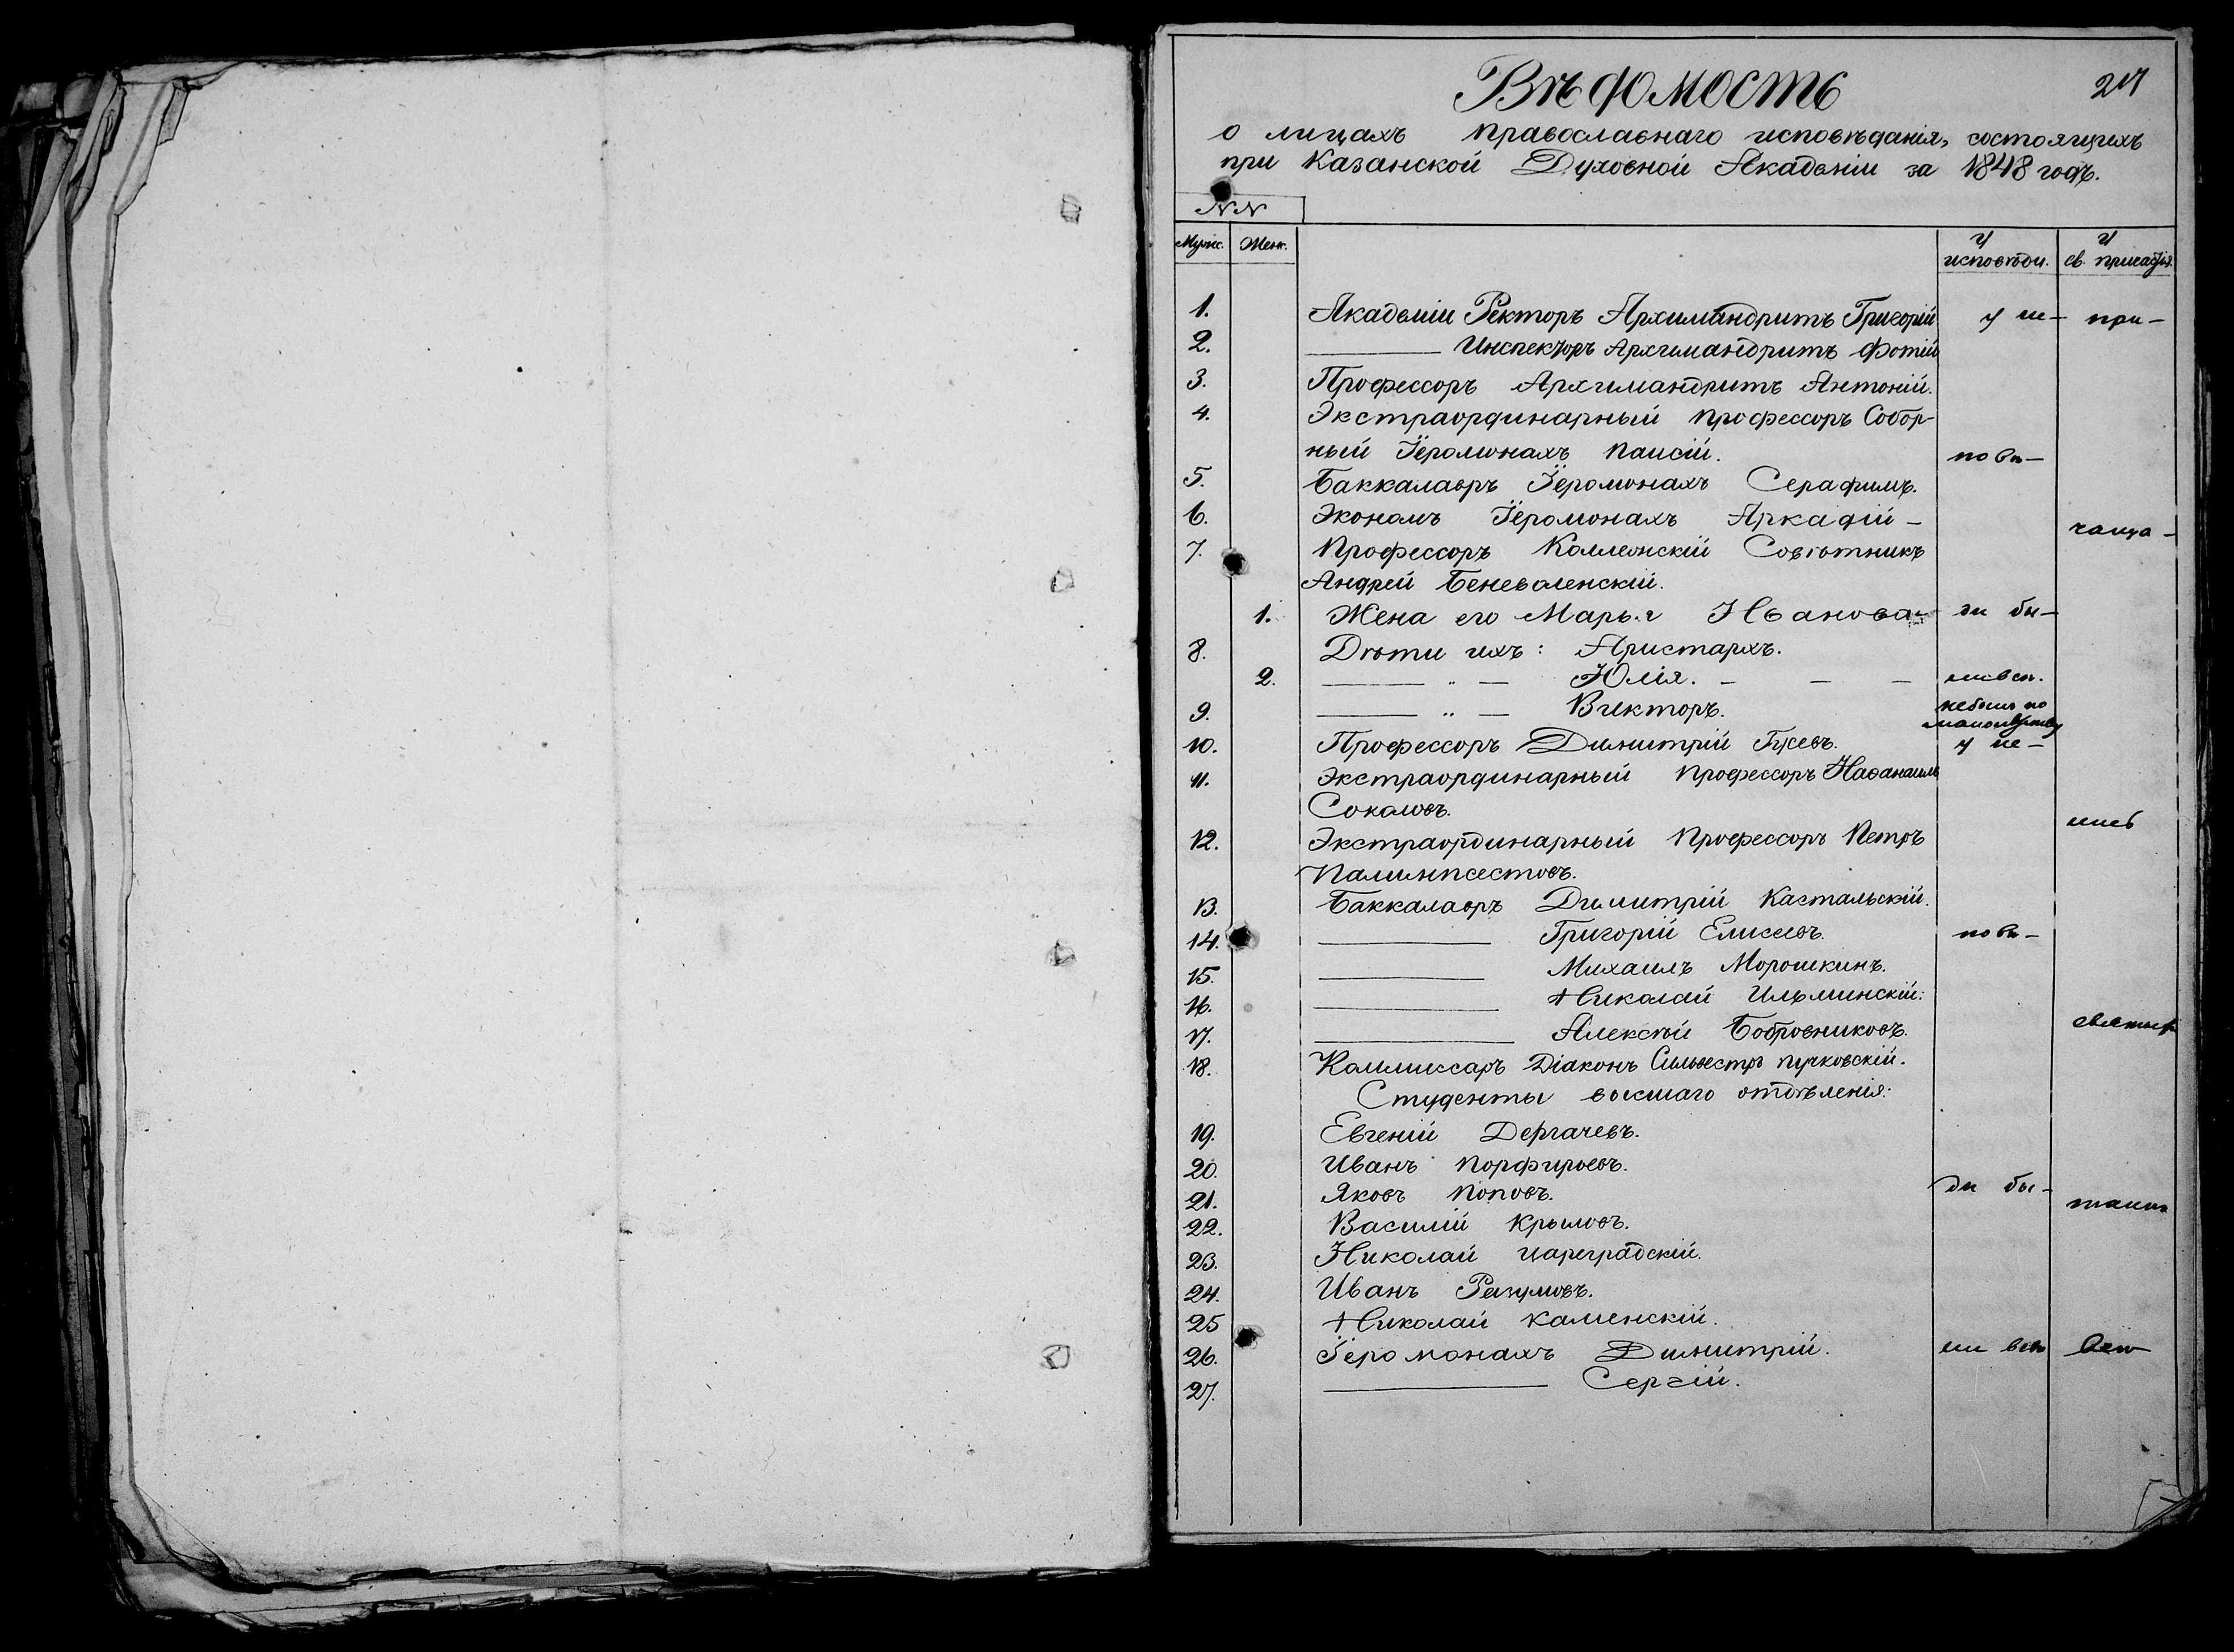 Вѣдомость
217
о лицахъ православнаго исповѣданія, состоящихъ
при Казанской Духовной Академіи за 1848 годъ.
NN
Мужс. Женс. у исповѣди. у св. причастія.
1. Академіи Ректоръ Архимандритъ Григорій у ис- при-
2. — Инспекторъ Архимандритъ Фотій
3. Профессоръ Архимандритъ Антоній.
4. Экстраординарный Профессоръ Собор-
ный Іеромонахъ Паисій. повѣ-
5. Баккалавръ Іеромонахъ Серафимъ.
6. Экономъ Іеромонахъ Аркадій —
чаща-
7. Профессоръ Коллежскій Совѣтникъ
Андрей Беневоленскій.
1. Жена его Марья Иванова — ди бы-
8. Дѣти ихъ: Аристархъ.
2. — „ — Юлія. — — — ли всѣ.
9. — „ — Викторъ. небылъ по
малолѣтству
10. Профессоръ Димитрій Гусевъ. у ис-
11. Экстраординарный Профессоръ Наѳанаилъ
Соколовъ.
лись
12. Экстраординарный Профессоръ Петръ
Палимпсестовъ.
13. Баккалавръ Димитрій Кастальскій.
14. — Григорій Елисеевъ. повѣ-
15. — Михаилъ Морошкинъ.
16. — Николай Ильминскій.
17. — Алексѣй Бобровниковъ. святыхъ
18. Коммиссаръ Діаконъ Сильвестръ Пучковскій.
Студенты высшаго отдѣленія:
19. Евгеній Дергачевъ.
20. Иванъ Порфирьевъ.
21. Яковъ Поповъ. ди бы- таинъ
22. Василій Крыловъ.
23. Николай Цареградскій.
24. Иванъ Разумовъ.
25 Николай Каменскій.
26. Іеромонахъ Димитрій. ли всѣ всѣ
27. — Сергій.